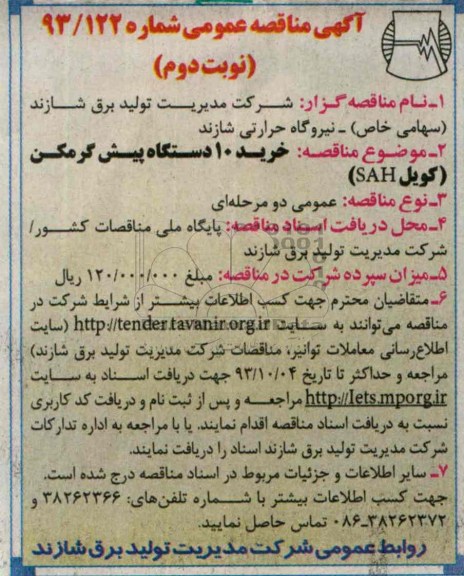 آگهی مناقصه عمومی شماره ۹۳/۱۲۲
(نوبت دوم)
۱ـ نـام مناقصه گـزار: شـرکت مدیریـت تولید برق شـازند
(سهامی خاص) ـ نیروگاه حرارتی شازند
۲ـ موضـوع مناقصـه: خریـد ۱۰ دستـگاه پیـش گرمکـن
(کویل SAH)
۳ـ نوع مناقصه: عمومی دو مرحله‌ای
۴ـ محل دریافت اسـناد مناقصه: پایگاه ملی مناقصات کشـور/
شرکت مدیریت تولید برق شازند
۵ـ میزان سپرده شرکت در مناقصه: مبلغ ۱۲۰/۰۰۰/۰۰۰ ریال
۶ـ متقاضیان محترم جهت کسب اطلاعات بیشتـر از شرایط شرکت در
مناقصه می‌توانند به سـایت http://tender.tavanir.org.ir (سایت
اطلاع‌رسانی معاملات توانیر، مناقصات شرکت مدیریت تولید برق شازند)
مراجعه و حداکثر تا تاریخ ۹۳/۱۰/۰۴ جهت دریافت اسـناد به سـایت
http://Iets.mporg.ir مراجعـه و پس از ثبت نام و دریافت کد کاربری
نسبت به دریافت اسناد مناقصه اقدام نمایند. یا با مراجعه به اداره تدارکات
شرکت مدیریت تولید برق شازند اسناد را دریافت نمایند.
۷ـ سایر اطلاعات و جزئیات مربوط در اسناد مناقصه درج شده است.
جهت کسب اطلاعات بیشتر با شـماره تلفن‌های: ۳۸۲۶۲۳۶۶ و
۳۸۲۶۲۳۷۲-۰۸۶ تماس حاصل نمایید.
روابط عمومی شرکت مدیریت تولید برق شازند